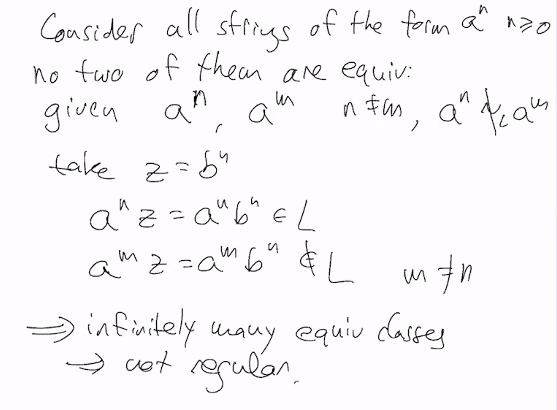 Consider all strings of the form aⁿ n≥0
no two of them are equiv:
given aⁿ, aᵐ n≠m, aⁿ ≁_L aᵐ
take z = bⁿ
aⁿ z = aⁿbⁿ ∈ L
aᵐ z = aᵐbⁿ ∉ L m≠n
⇒ infinitely many equiv classes
→ not regular.